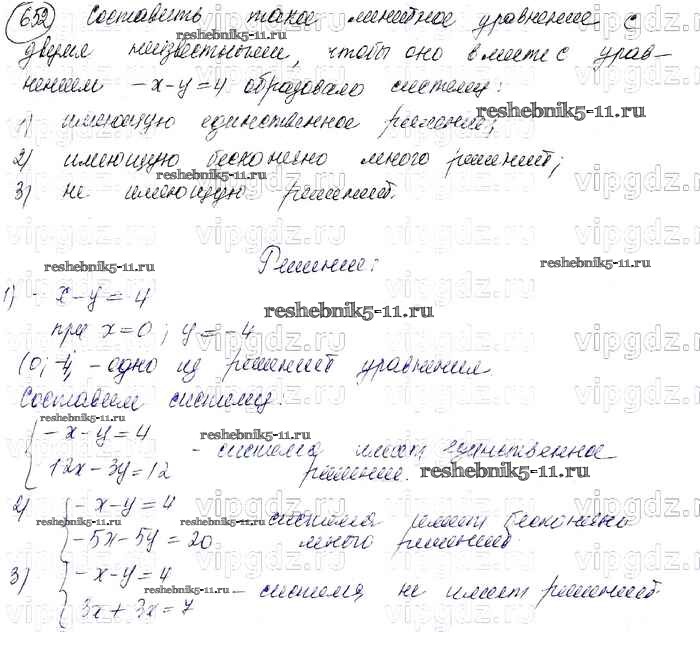 652 Составить такое линейное уравнение с
двумя неизвестными, чтобы оно вместе с урав-
нением -x-y=4 образовало систему:
1) имеющую единственное решение;
2) имеющую бесконечно много решений;
3) не имеющую решений.
Решение:
1) -x-y=4
при x=0; y=-4
(0; -4) - одно из решений уравнения
Составим систему:
{-x-y=4
12x-3y=12 - система имеет единственное
решение.
2) {-x-y=4
-5x-5y=20 - система имеет бесконечно
много решений
3) {-x-y=4
3x+3x=7 - система не имеет решений
reshebnik5-11.ru
vipgdz.ru